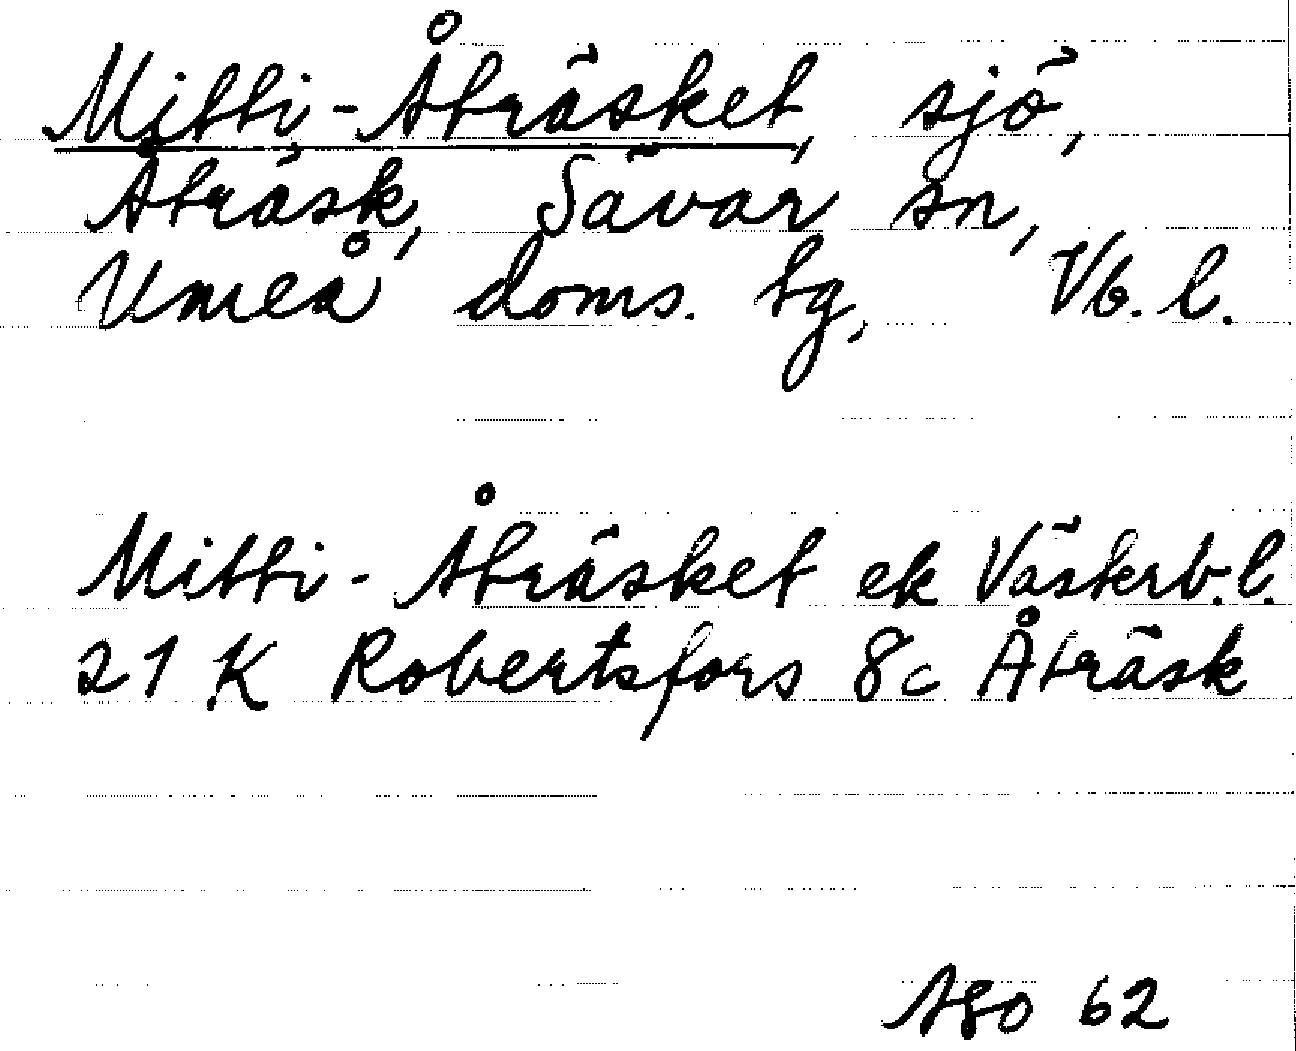 Mitti-Åträsket, sjö,
Åträsk, Sävar sn,
Umeå doms. tg, Vb. l.
Mitti-Åträsket ek Västerb.l.
21 K Robertsfors 8c Åträsk
ASO 62